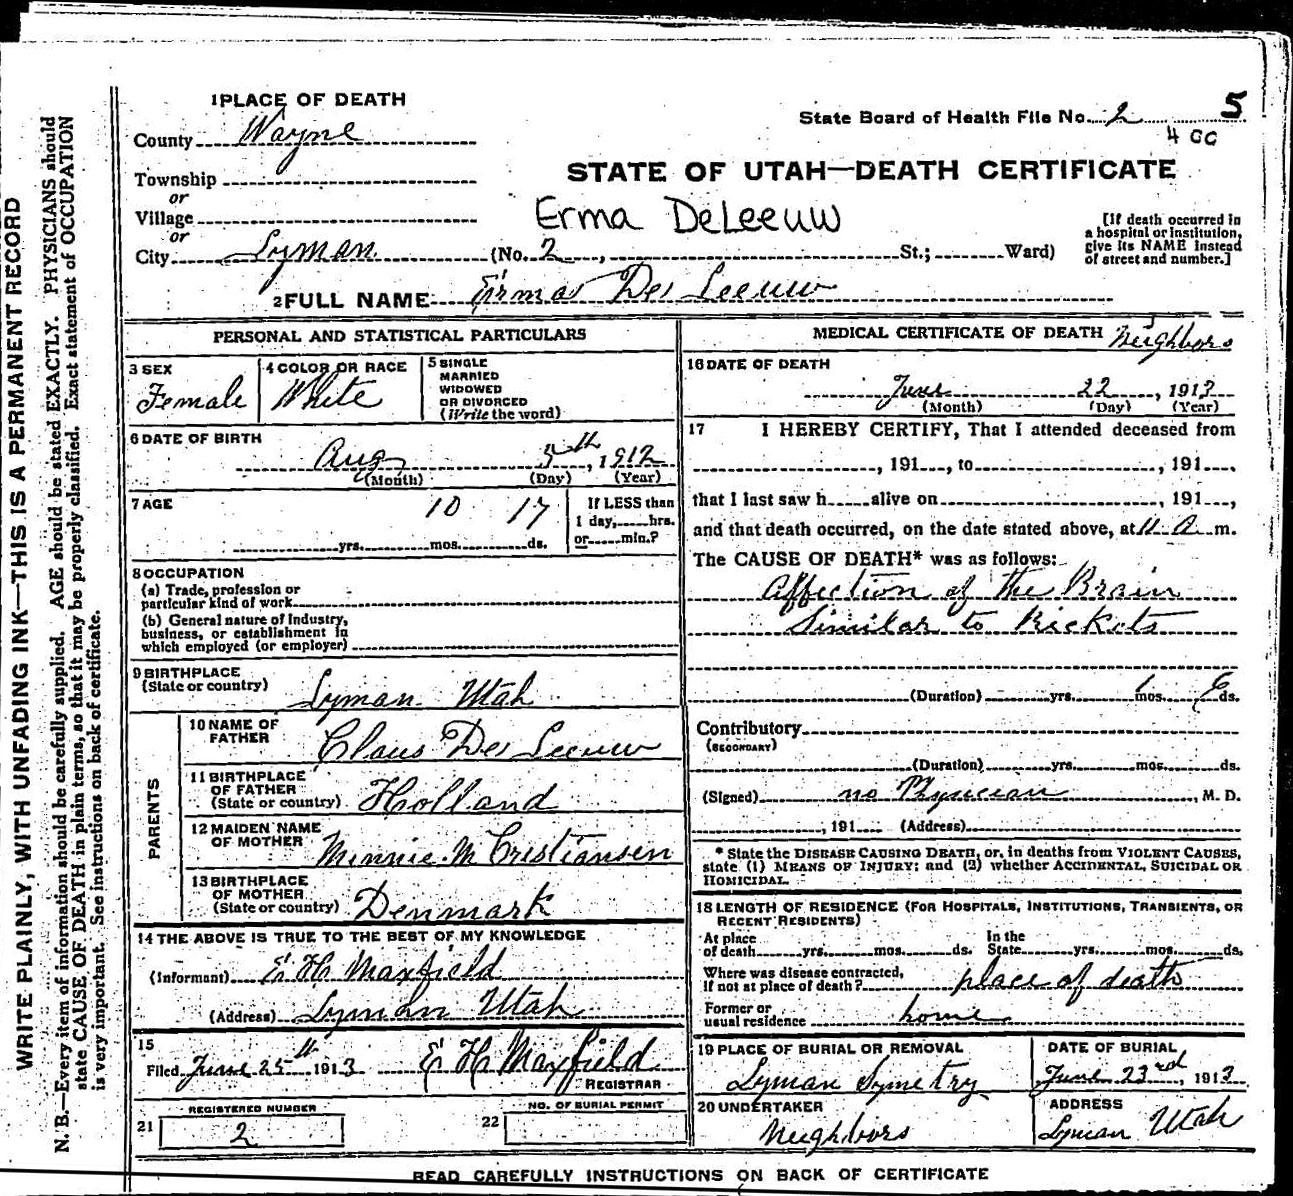 1 PLACE OF DEATH
County Wayne
Township
or
Village
or
City Lyman (No. 2, St.; Ward)
State Board of Health File No. 2 5
4 GG
STATE OF UTAH—DEATH CERTIFICATE
Erma DeLeeuw
[If death occurred in
a hospital or institution,
give its NAME instead
of street and number.]
2 FULL NAME Erma De Leeuw
PERSONAL AND STATISTICAL PARTICULARS
3 SEX
Female
4 COLOR OR RACE
White
5 SINGLE
MARRIED
WIDOWED
OR DIVORCED
(Write the word)
6 DATE OF BIRTH
Aug 5th, 1912
(Month) (Day) (Year)
7 AGE
10 17
yrs. mos. ds.
If LESS than
1 day, hrs.
or min.?
8 OCCUPATION
(a) Trade, profession or
particular kind of work
(b) General nature of Industry,
business, or establishment in
which employed (or employer)
9 BIRTHPLACE
(State or country) Lyman Utah
PARENTS
10 NAME OF
FATHER Claus De Leeuw
11 BIRTHPLACE
OF FATHER
(State or country) Holland
12 MAIDEN NAME
OF MOTHER Minnie M Cristiansen
13 BIRTHPLACE
OF MOTHER
(State or country) Denmark
14 THE ABOVE IS TRUE TO THE BEST OF MY KNOWLEDGE
(Informant) E H Maxfield
(Address) Lyman Utah
15
Filed June 25th 1913 E H Maxfield
REGISTRAR
REGISTERED NUMBER
21 2
NO. OF BURIAL PERMIT
22
MEDICAL CERTIFICATE OF DEATH Neighbors
16 DATE OF DEATH
June 22, 1913
(Month) (Day) (Year)
17 I HEREBY CERTIFY, That I attended deceased from
, 191 , to , 191 ,
that I last saw h alive on , 191 ,
and that death occurred, on the date stated above, at 11 A m.
The CAUSE OF DEATH* was as follows:
Affection of the Brain
Similar to Rickets
(Duration) yrs. 1 mos. 6 ds.
Contributory
(SECONDARY)
(Duration) yrs. mos. ds.
(Signed) no Physician, M. D.
, 191 (Address)
* State the DISEASE CAUSING DEATH, or, in deaths from VIOLENT CAUSES,
state (1) MEANS OF INJURY; and (2) whether ACCIDENTAL, SUICIDAL OR
HOMICIDAL.
18 LENGTH OF RESIDENCE (FOR HOSPITALS, INSTITUTIONS, TRANSIENTS, OR
RECENT RESIDENTS)
At place
of death yrs. mos. ds.
In the
State yrs. mos. ds.
Where was disease contracted,
If not at place of death? place of death
Former or
usual residence home
19 PLACE OF BURIAL OR REMOVAL
Lyman Symetry
DATE OF BURIAL
June 23rd, 1913
20 UNDERTAKER
Neighbors
ADDRESS
Lyman Utah
READ CAREFULLY INSTRUCTIONS ON BACK OF CERTIFICATE
WRITE PLAINLY, WITH UNFADING INK—THIS IS A PERMANENT RECORD
N. B.—Every item of information should be carefully supplied. AGE should be stated EXACTLY. PHYSICIANS should
state CAUSE OF DEATH in plain terms, so that it may be properly classified. Exact statement of OCCUPATION
is very important. See instructions on back of certificate.